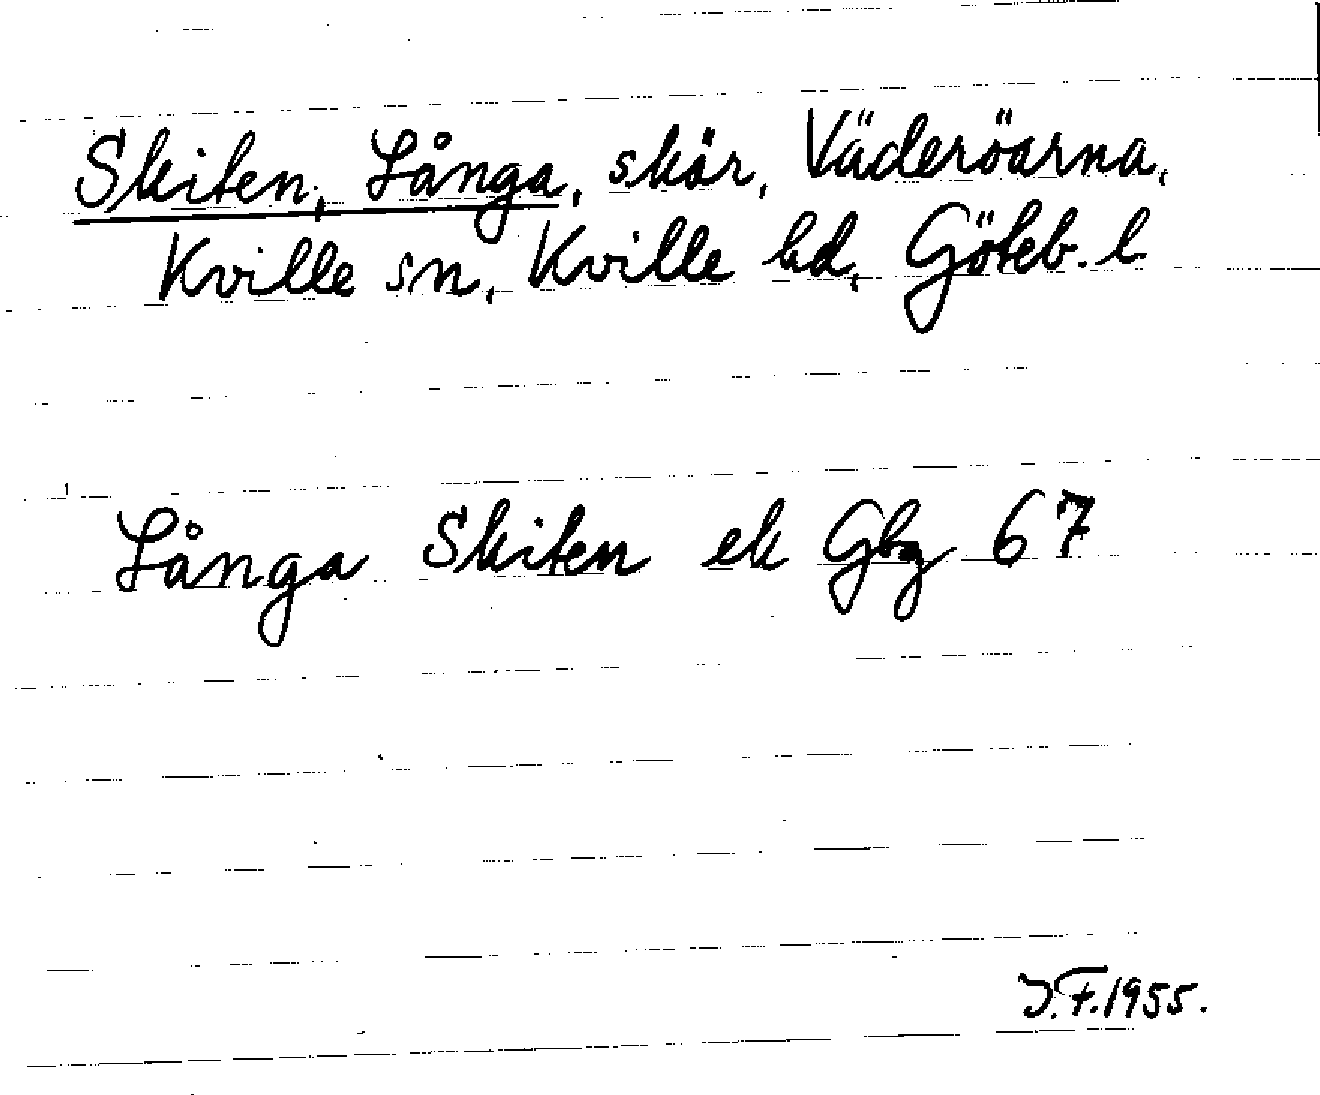 Skiten, Långa, skär, Väderöarna,
Kville sn, Kville hd, Göteb. l.
Långa Skiten ek Gbg 67
J.F. 1955.